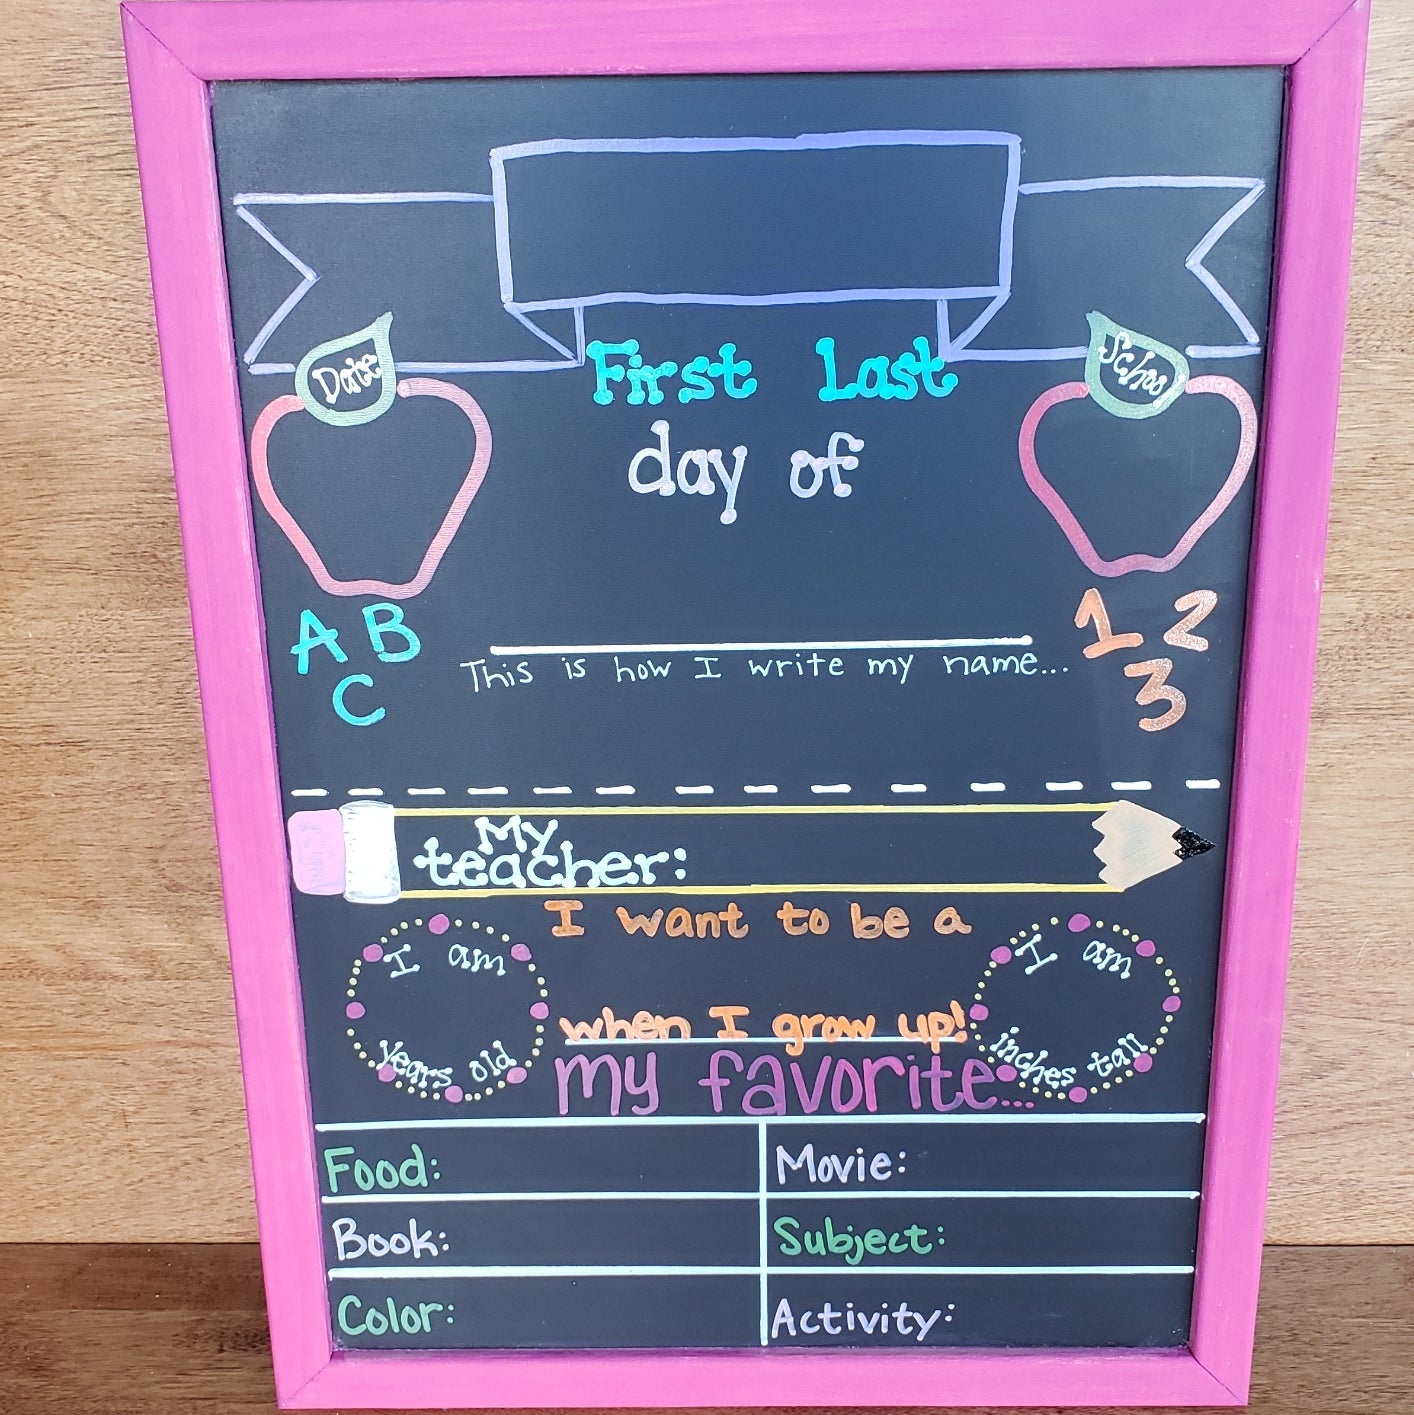 Date
School
First Last
day of
A B
C
1 2
3
This is how I write my name...
My
teacher:
I want to be a
when I grow up!
I am
years old
I am
inches tall
my favorite...
Food:
Movie:
Book:
Subject:
Color:
Activity: